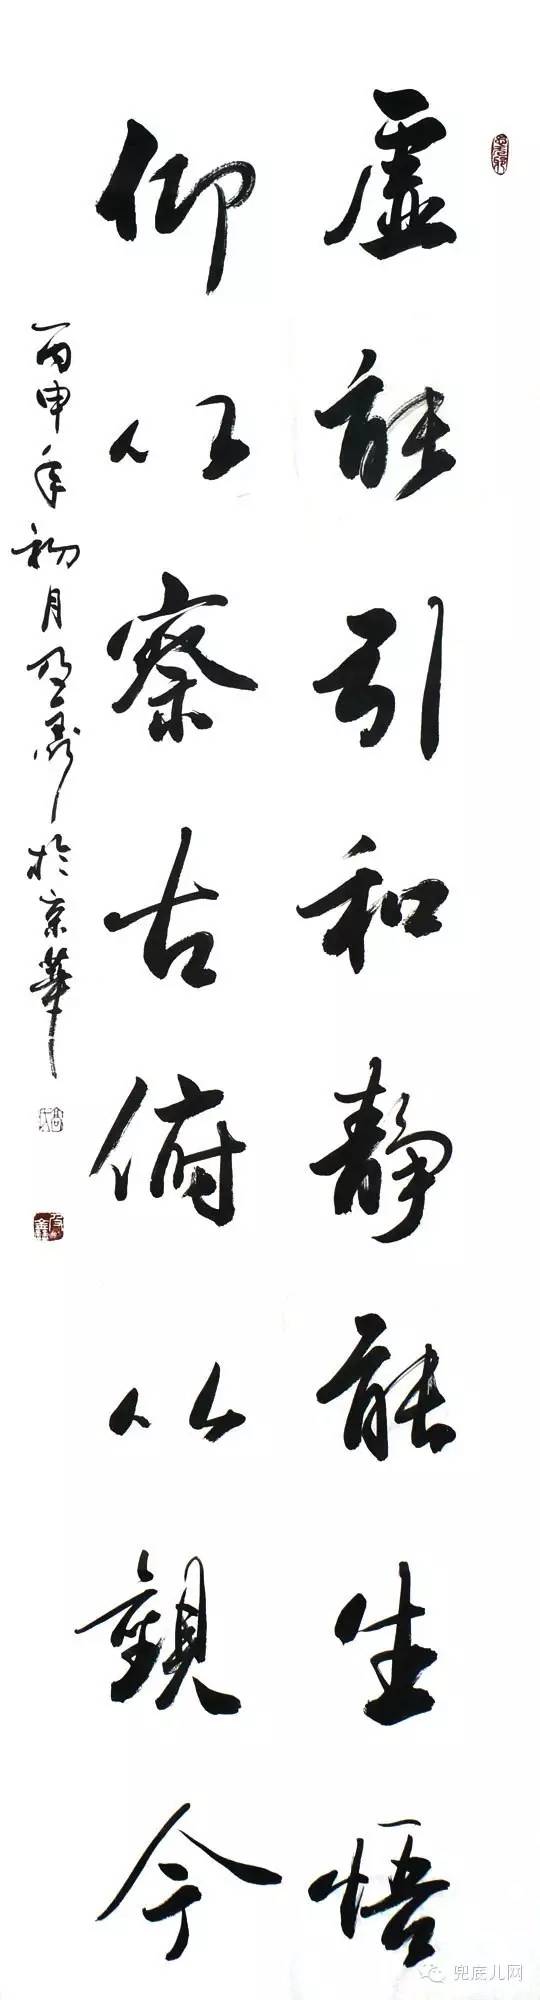 虚能引和静能生悟
仰以察古俯以观今
丙申年初月及鑫於京華
兜底儿网